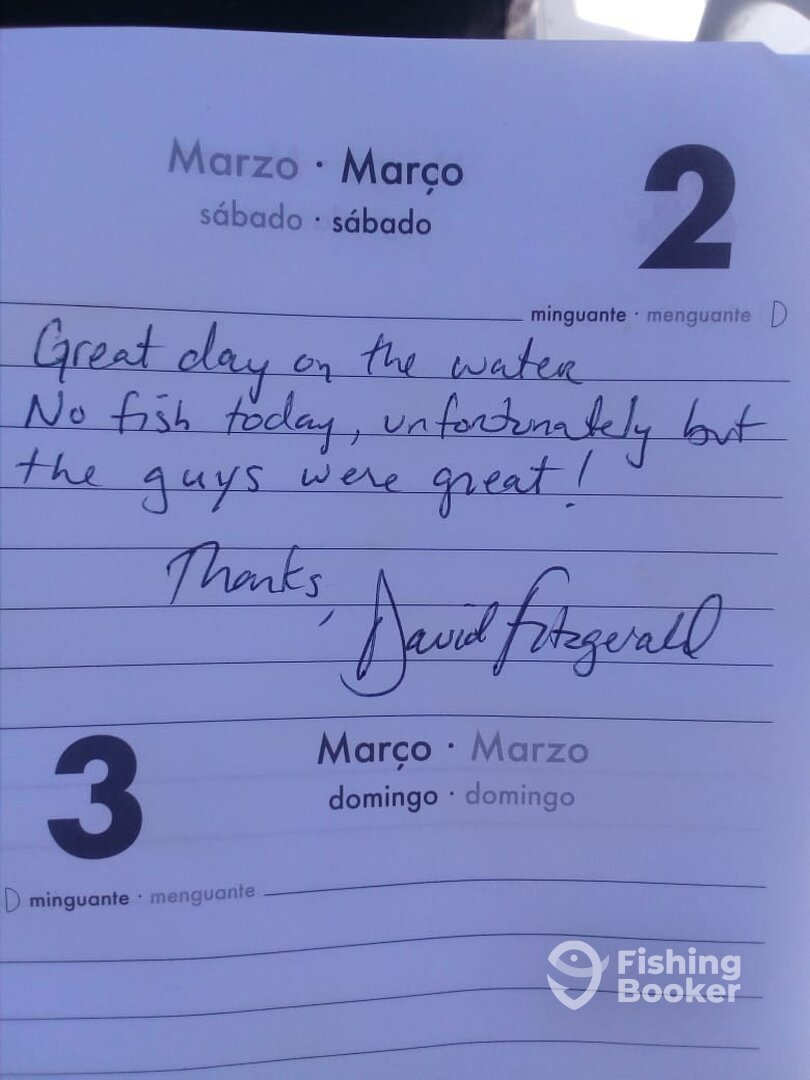 Marzo · Março
sábado · sábado
2
minguante · menguante D
Great day on the water
No fish today, unfortunately but
the guys were great!
Thanks,
David Fitzgerald
3
Março · Marzo
domingo · domingo
D minguante · menguante
Fishing
Booker